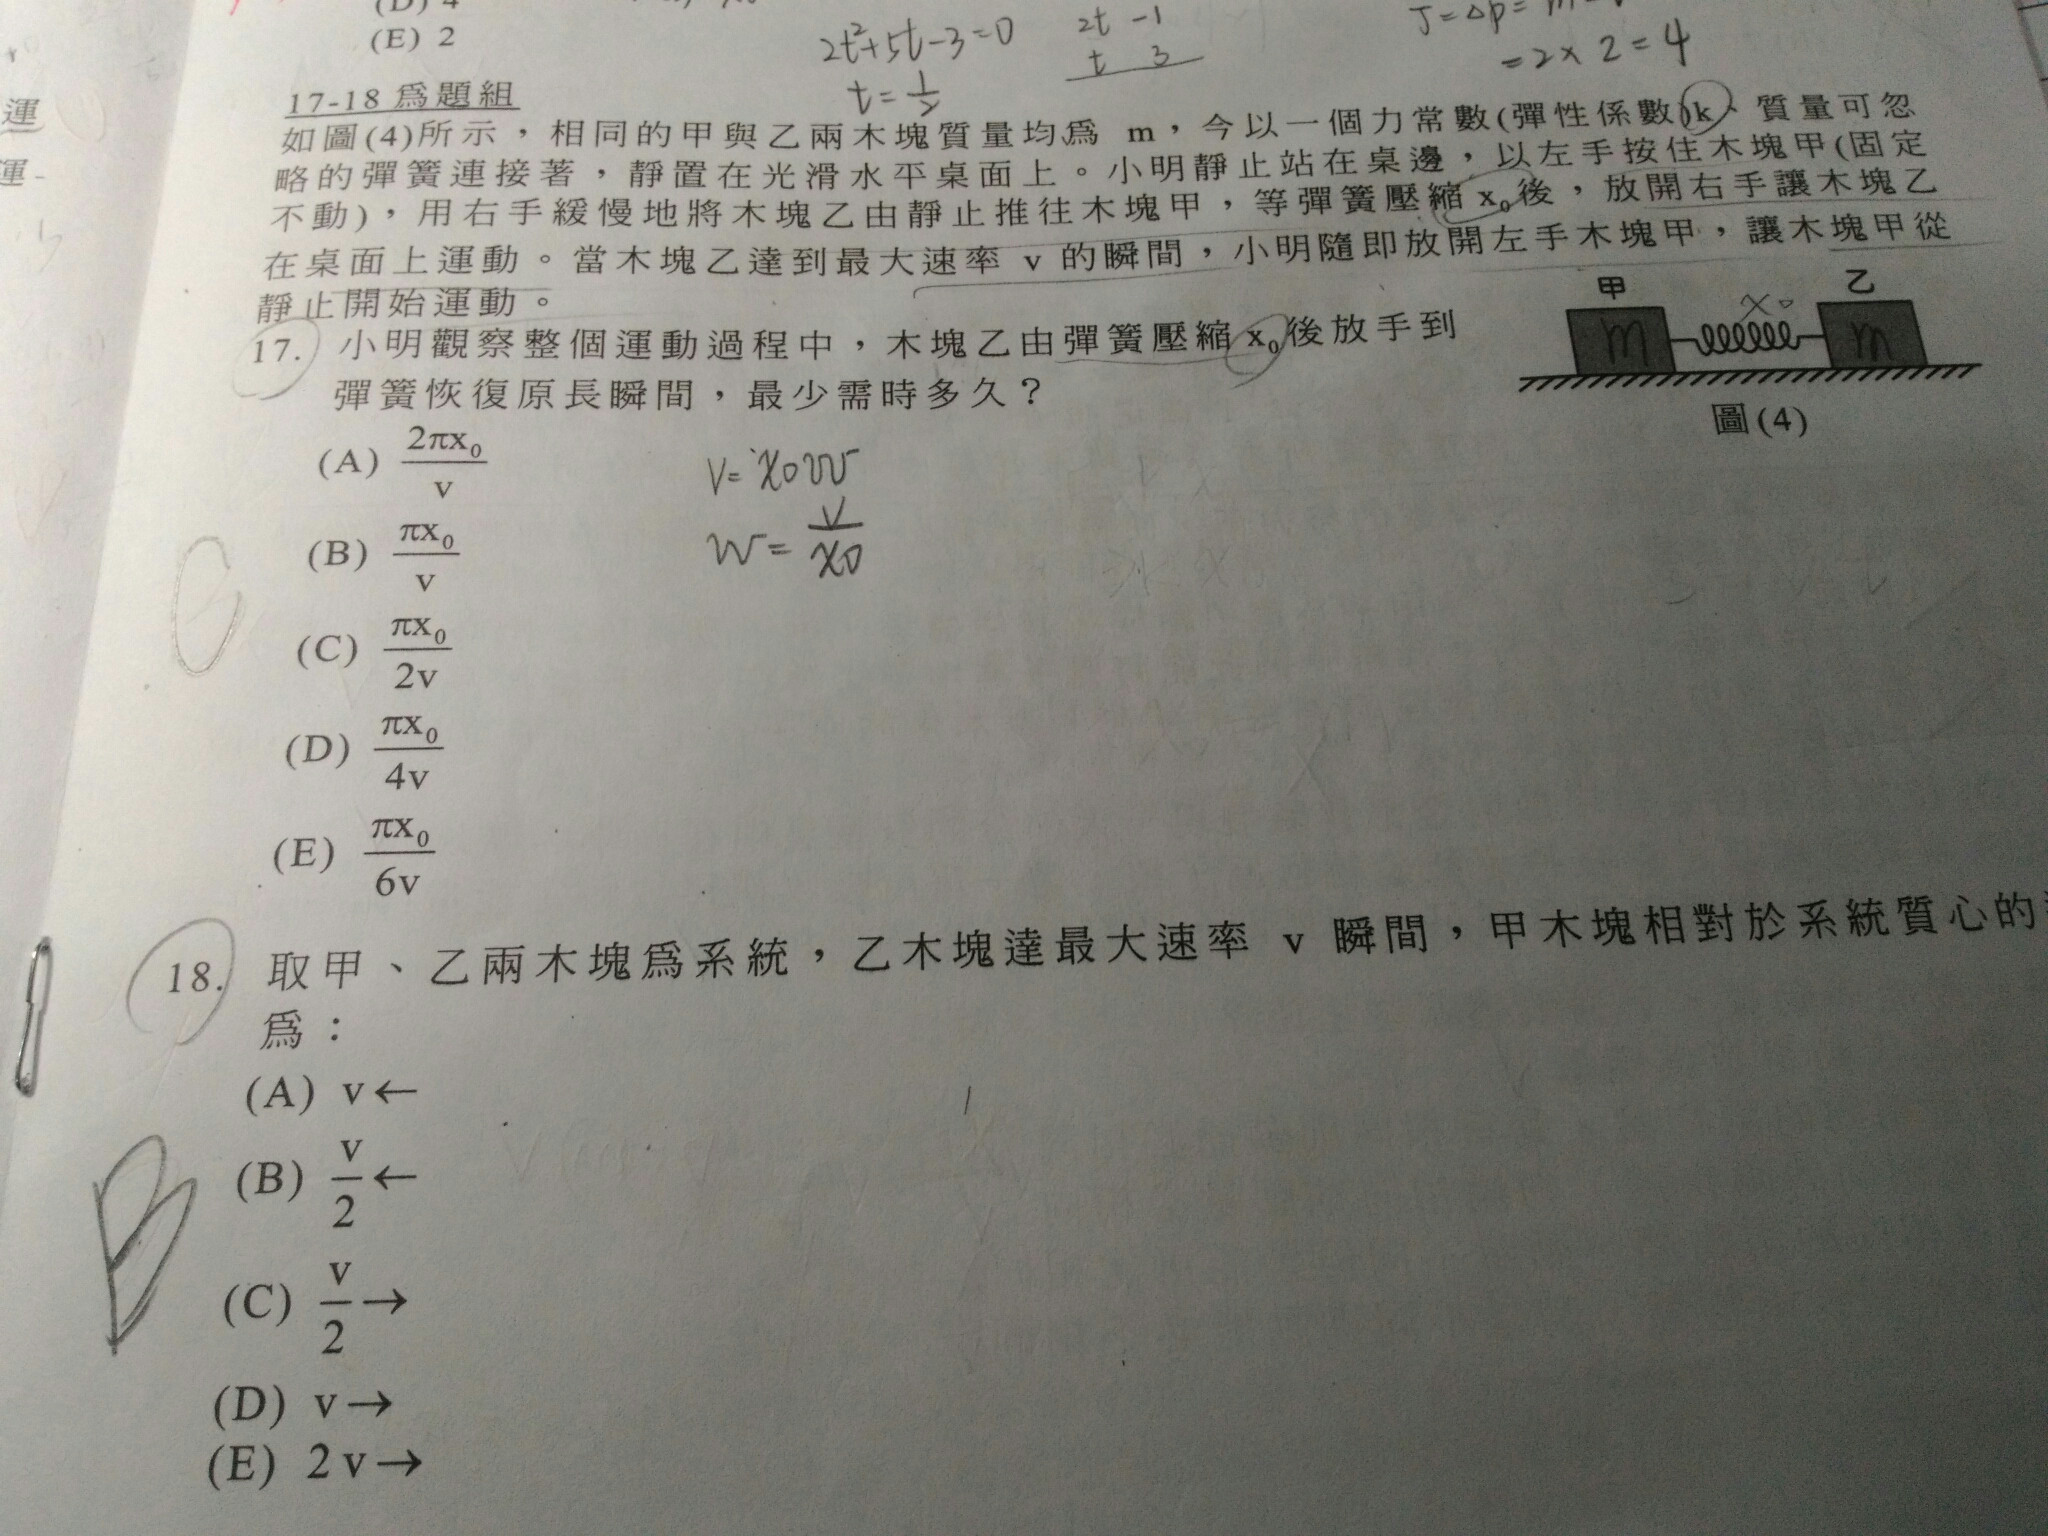 (D) 4
(E) 2
2t²+5t-3=0
2t -1
t 3
t=1/2
J=Δp=
=2×2=4
運
運
17-18 為題組
如圖(4)所示，相同的甲與乙兩木塊質量均為 m，今以一個力常數(彈性係數)k、質量可忽
略的彈簧連接著，靜置在光滑水平桌面上。小明靜止站在桌邊，以左手按住木塊甲(固定
不動)，用右手緩慢地將木塊乙由靜止推往木塊甲，等彈簧壓縮 x₀後，放開右手讓木塊乙
在桌面上運動。當木塊乙達到最大速率 v 的瞬間，小明隨即放開左手木塊甲，讓木塊甲從
靜止開始運動。
甲 乙
x₀
m m
圖(4)
17. 小明觀察整個運動過程中，木塊乙由彈簧壓縮 x₀後放手到
彈簧恢復原長瞬間，最少需時多久？
(A) 2πx₀/v
(B) πx₀/v
(C) πx₀/2v
(D) πx₀/4v
(E) πx₀/6v
v=x₀w
w=v/x₀
C
18. 取甲、乙兩木塊為系統，乙木塊達最大速率 v 瞬間，甲木塊相對於系統質心的
為：
(A) v←
(B) v/2←
(C) v/2→
(D) v→
(E) 2v→
B